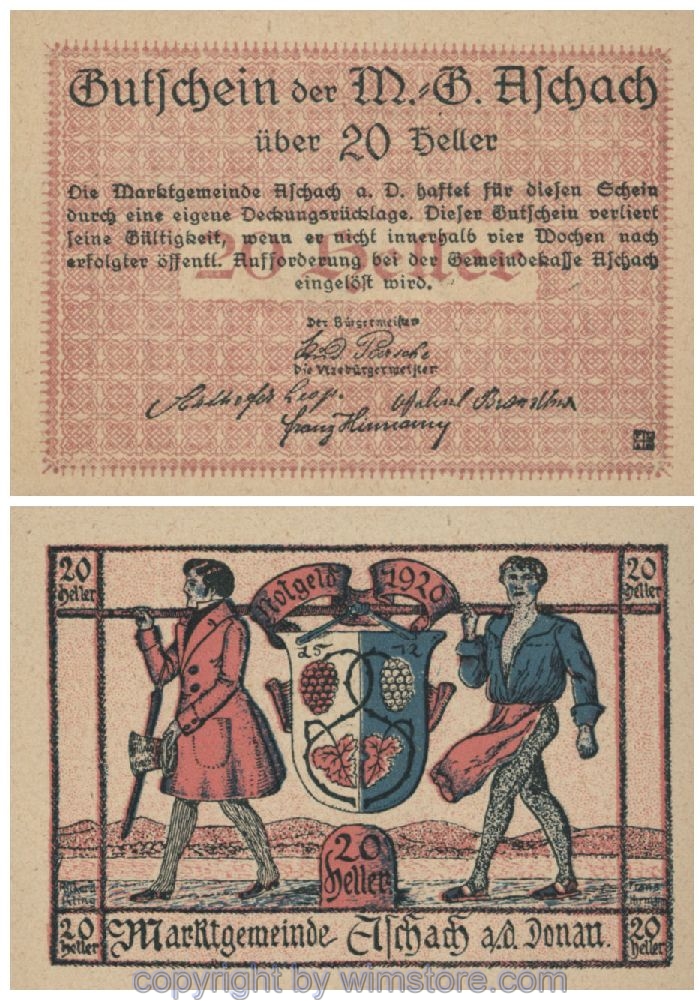 Gutschein der M.-G. Aschach
über 20 Heller
20 Heller
Die Marktgemeinde Aschach a. D. haftet für diesen Schein
durch eine eigene Deckungsrücklage. Dieser Gutschein verliert
seine Gültigkeit, wenn er nicht innerhalb vier Wochen nach
erfolgter öffentl. Aufforderung bei der Gemeindekasse Aschach
eingelöst wird.
Der Bürgermeister
Die Vizebürgermeister
20 Heller
Notgeld 1920
20 Heller
15 72
20
Heller
20 Heller
Marktgemeinde Aschach a/d. Donau.
20 Heller
copyright by wimstore.com